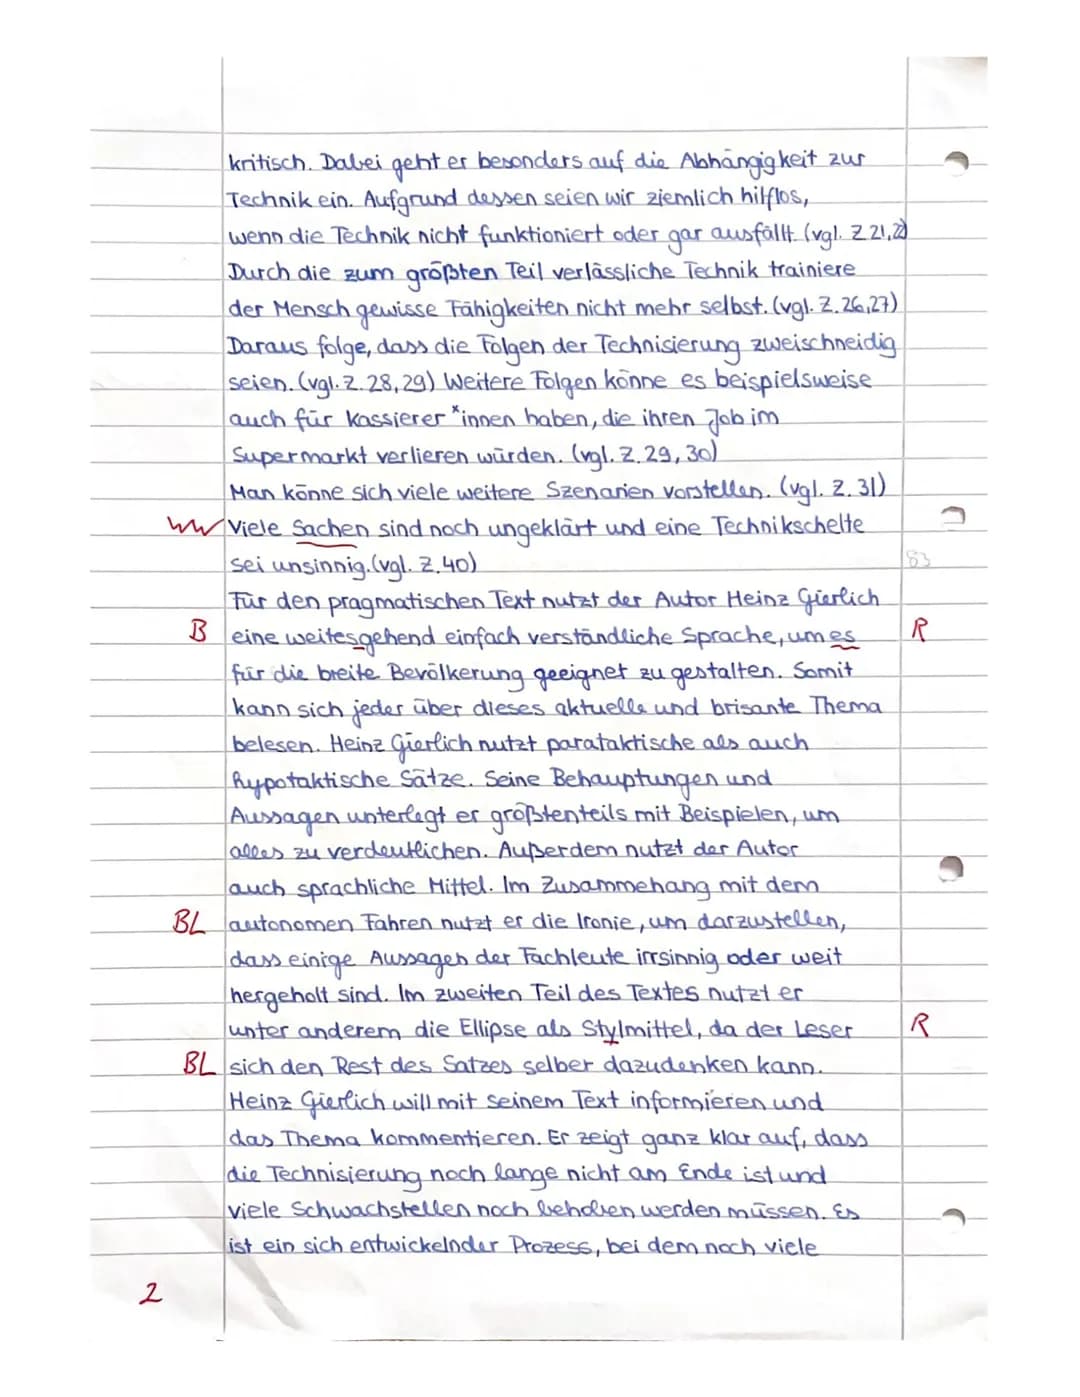 kritisch. Dabei geht er besonders auf die Abhängigkeit zur
Technik ein. Aufgrund dessen seien wir ziemlich hilflos,
wenn die Technik nicht funktioniert oder gar ausfällt. (vgl. Z 21,22)
Durch die zum größten Teil verlässliche Technik trainiere
der Mensch gewisse Fähigkeiten nicht mehr selbst. (vgl. Z. 26,27)
Daraus folge, dass die Folgen der Technisierung zweischneidig
seien. (vgl. Z. 28, 29) Weitere Folgen könne es beispielsweise
auch für Kassierer*innen haben, die ihren Job im
Supermarkt verlieren würden. (vgl. Z. 29, 30)
Man könne sich viele weitere Szenarien vorstellen. (vgl. Z. 31)
WW Viele Sachen sind noch ungeklärt und eine Technikschelte
sei unsinnig. (vgl. Z. 40) 83
Für den pragmatischen Text nutzt der Autor Heinz Gierlich
B eine weitesgehend einfach verständliche Sprache, um es R
für die breite Bevölkerung geeignet zu gestalten. Somit
kann sich jeder über dieses aktuelle und brisante Thema
belesen. Heinz Gierlich nutzt parataktische als auch
hypotaktische Sätze. Seine Behauptungen und
Aussagen unterlegt er größtenteils mit Beispielen, um
alles zu verdeutlichen. Außerdem nutzt der Autor
auch sprachliche Mittel. Im Zusammehang mit dem
BL autonomen Fahren nutzt er die Ironie, um darzustellen,
dass einige Aussagen der Fachleute irrsinnig oder weit
hergeholt sind. Im zweiten Teil des Textes nutzt er
unter anderem die Ellipse als Stylmittel, da der Leser R
BL sich den Rest des Satzes selber dazudenken kann.
Heinz Gierlich will mit seinem Text informieren und
das Thema kommentieren. Er zeigt ganz klar auf, dass
die Technisierung noch lange nicht am Ende ist und
viele Schwachstellen noch behoben werden müssen. Es
ist ein sich entwickelnder Prozess, bei dem noch viele
2